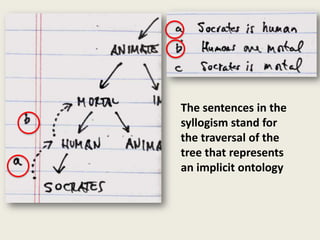 a Socrates is human
b Humans are mortal
c Socrates is mortal
ANIMATE
MORTAL
b
HUMAN ANIMA
a
SOCRATES
The sentences in the
syllogism stand for
the traversal of the
tree that represents
an implicit ontology